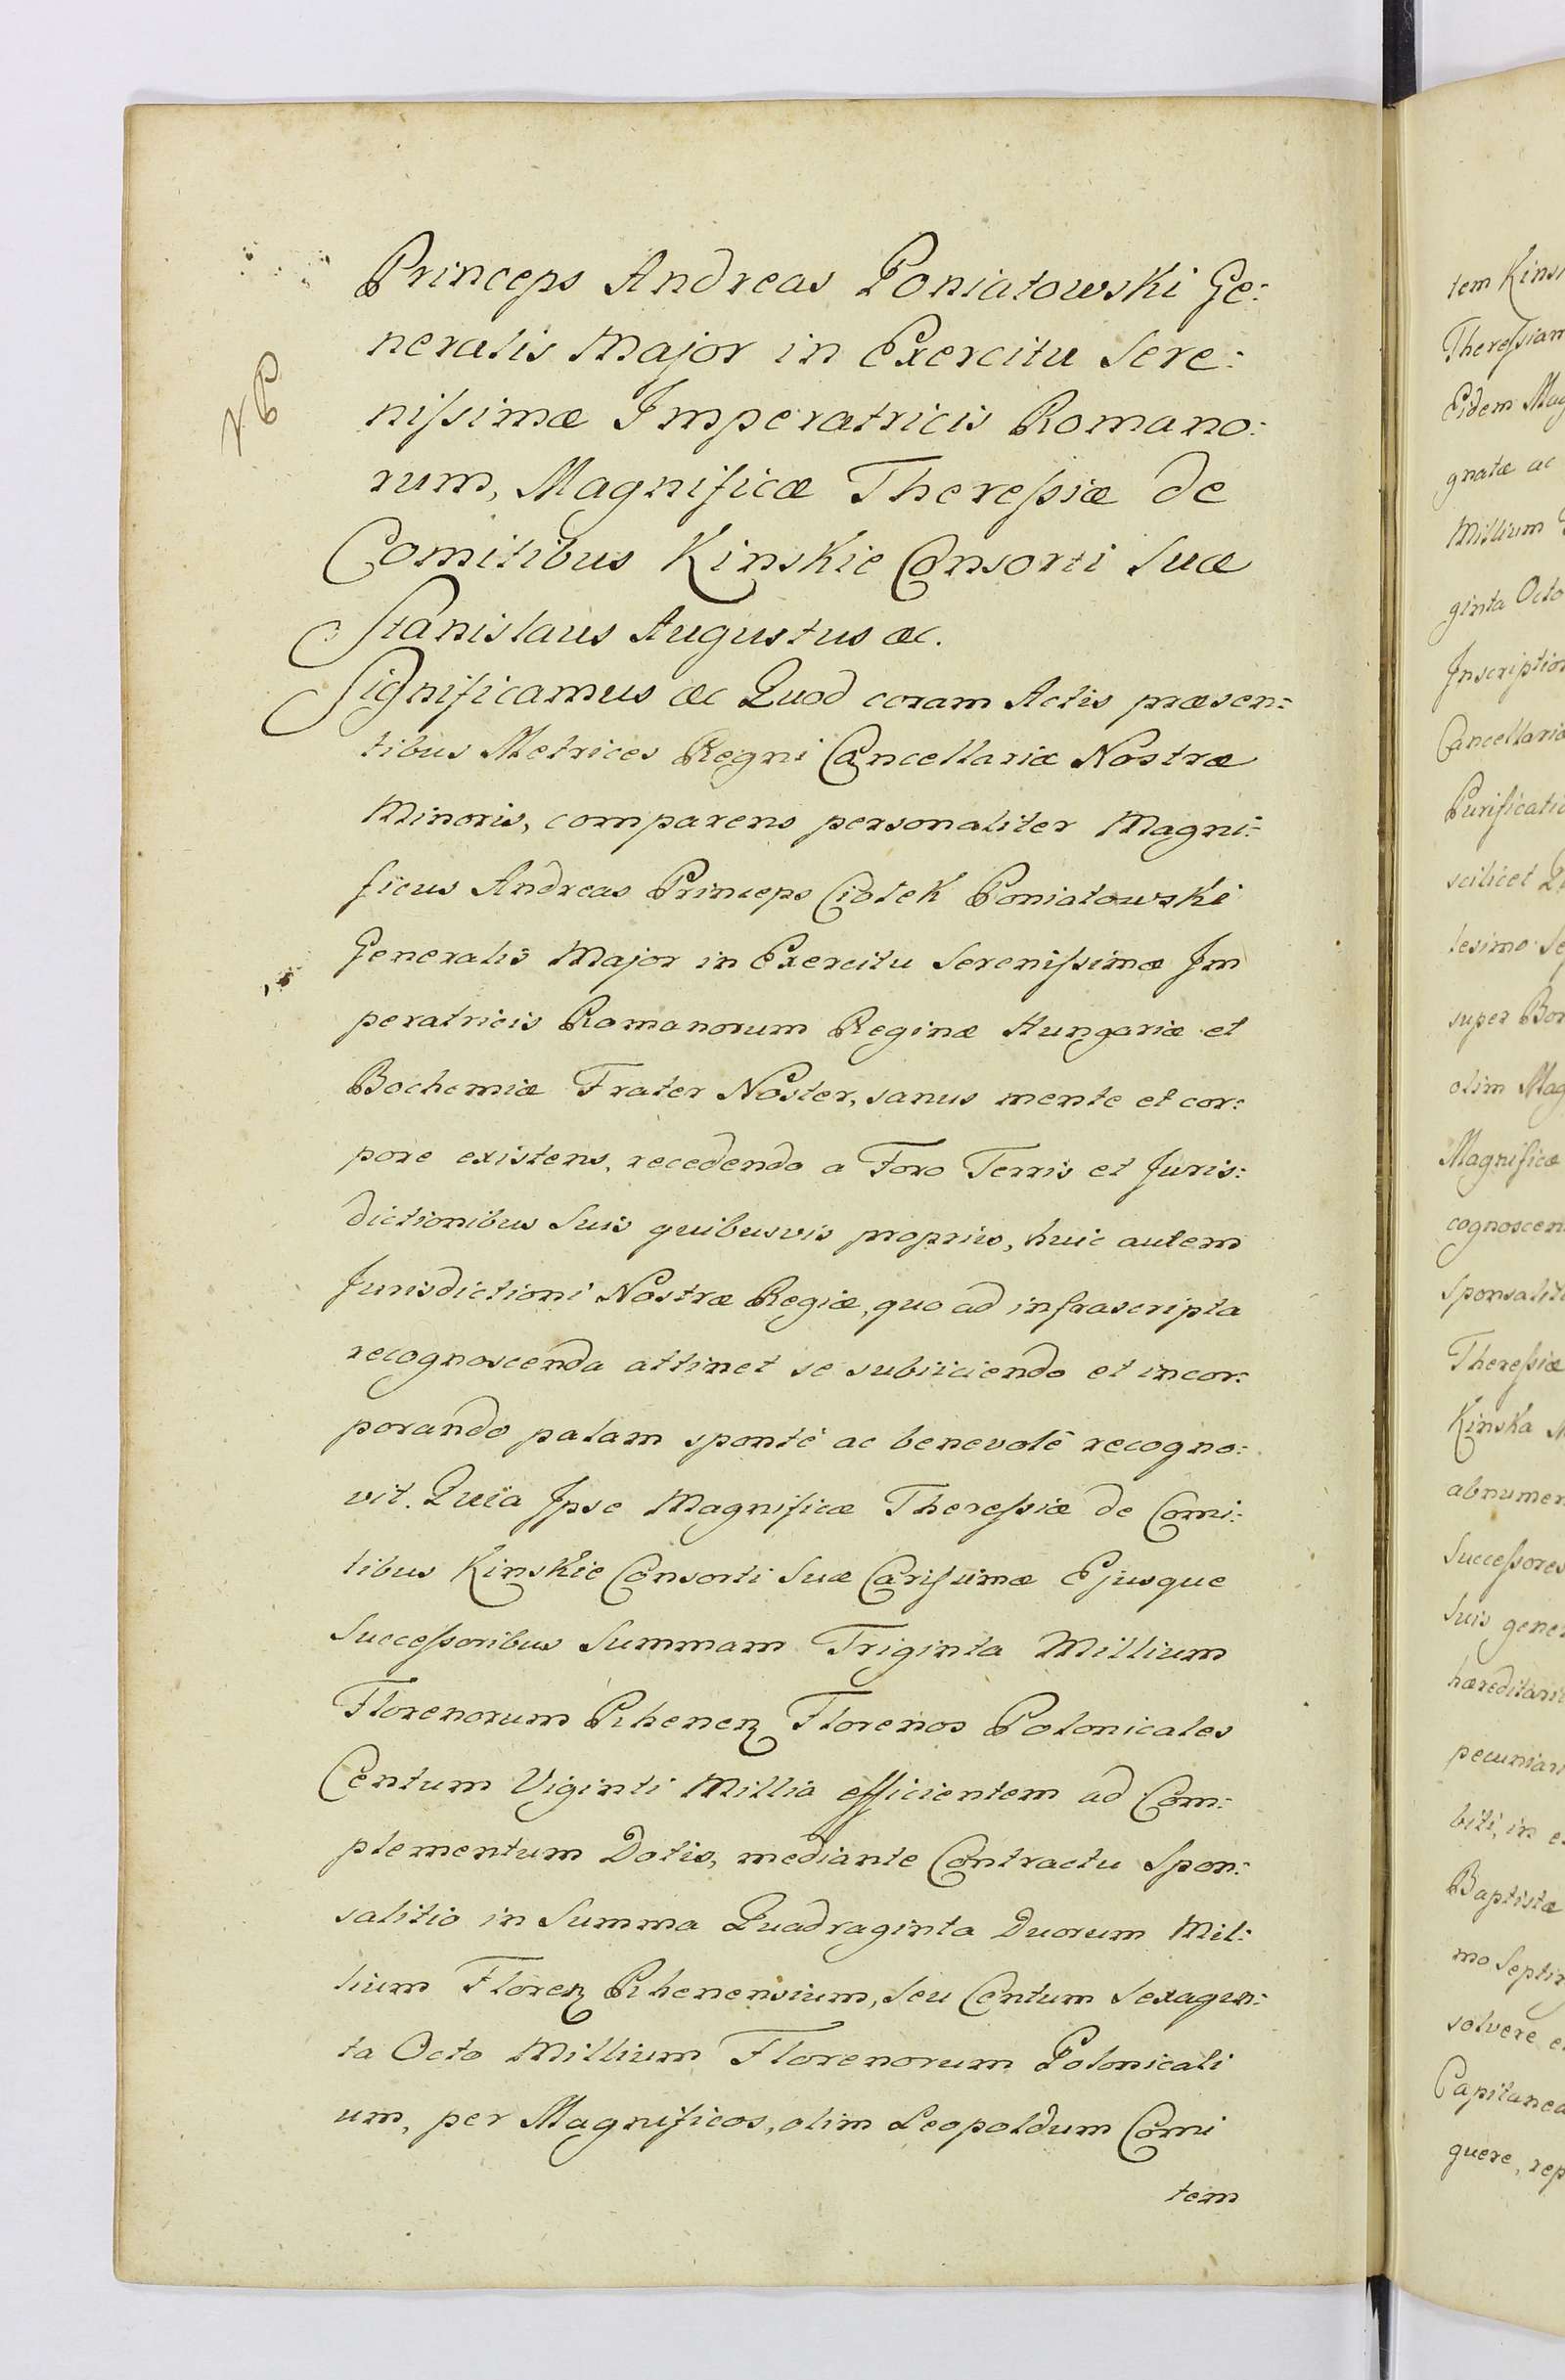 Princeps Andreas Poniatowski Ge:
neralis Major in Exercitu Sere:
nissimæ Imperatricis Romano:
rum, Magnificæ Theressiæ de
Comitibus Kinskie Consorti Suæ
Stanislaus Augustus &c.
Significamus &c Quod coram Actis præsen:
tibus Metrices Regni Cancellariæ Nostræ
Minoris, comparens personaliter Magni:
ficus Andreas Princeps Ciołek Poniatowski
Generalis Major in Exercitu Serenissimæ Im
peratricis Romanorum Reginæ Hungariæ et
Bochemiæ Frater Noster, sanus mente et cor:
pore existens, recedendo a Foro Terris et Juris:
dictionibus Suis quibusvis propriis, huic autem
Jurisdictioni Nostræ Regiæ, quo ad infrascripta
recognoscenda attinet se subiiciendo et incor:
porando palam spontè ac benevolè recogno:
vit. Quia Ipse Magnificæ Theressiæ de Comi:
tibus Kinskie Consorti Suæ Carissimæ Ejusque
Successoribus Summam Triginta Millium
Florenorum Rhenen Florenos Polonicales
Centum Viginti Millia efficientem ad Com:
plementum Dotis, mediante Contractu Spon:
salitio in Summa Quadraginta Duorum Mil:
lium Floren Rhenensium, seu Centum Sexagin:
ta Octo Millium Florenorum Polonicali
um, per Magnificos, olim Leopoldum Comi
tem
NP
tem Kins
Theressiam
Eidem Mag
gnatæ ac
Millium
ginta Octo
Inscription
Cancellaria
Purificatio
scilicet
lesimo Se
super Bon
olim Mag
Magnificæ
cognoscen
sponsaliti
Theressiæ
Kinska
abnumer
Successores
Suis gener
hæreditari
pecuniari
biti, in
Baptistæ
mo Septin
solvere e
Capitanea
quere, rep